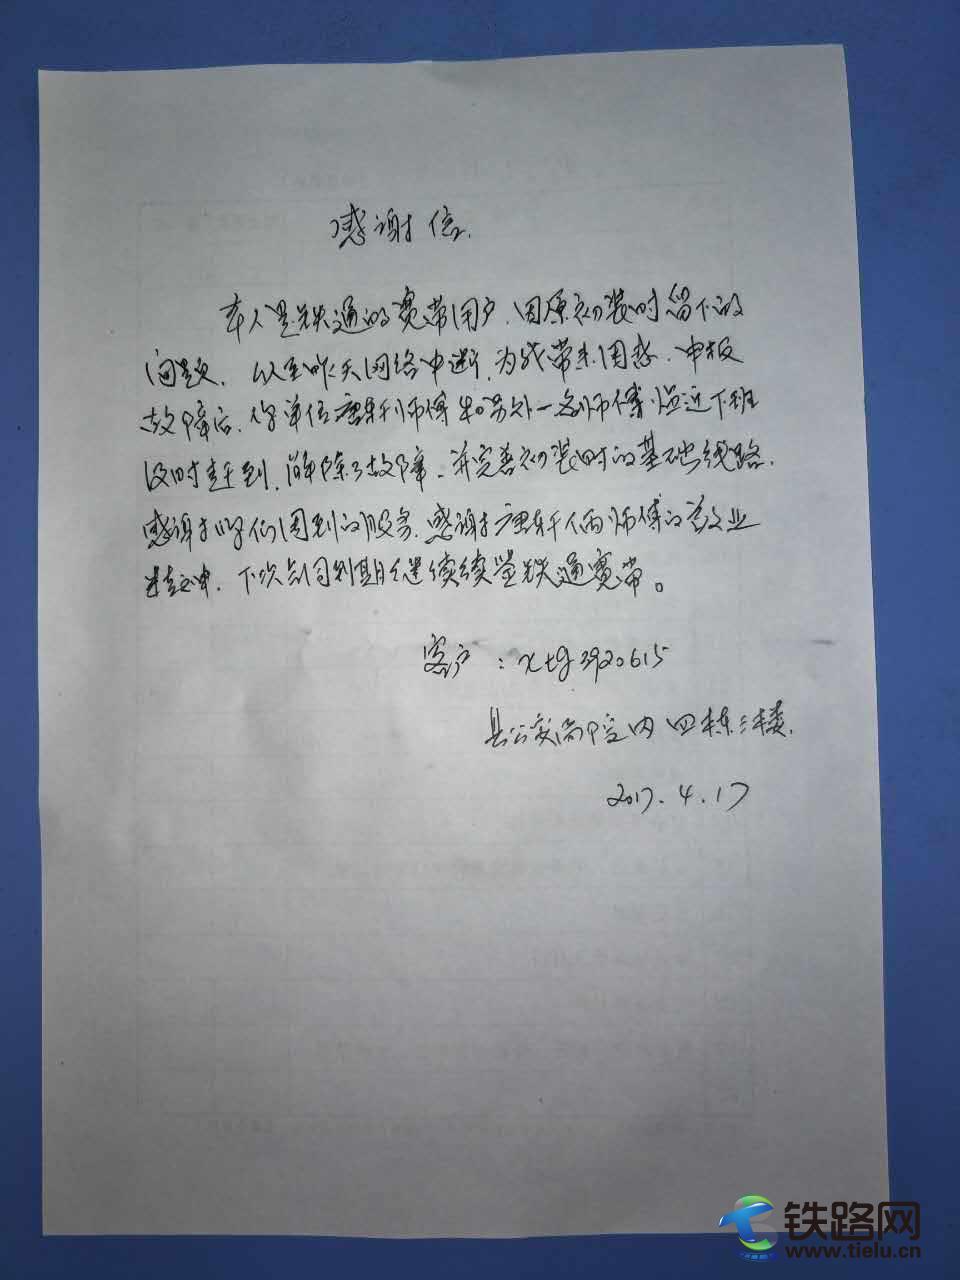 感谢信.
本人是铁通的宽带用户,因原初装时留下的
问题,以至昨天网络中断,为我带来困惑.申报
故障后,你单位唐轩师傅和另外一名师傅临近下班
及时赶到,解除了故障,并完善初装时的基础线路.
感谢你们周到的服务,感谢唐轩两师傅的敬业
精神,下次合同到期继续续签铁通宽带。
客户:xtg3920615
县公安局院内四栋三楼.
2017.4.17
铁路网
www.tielu.cn